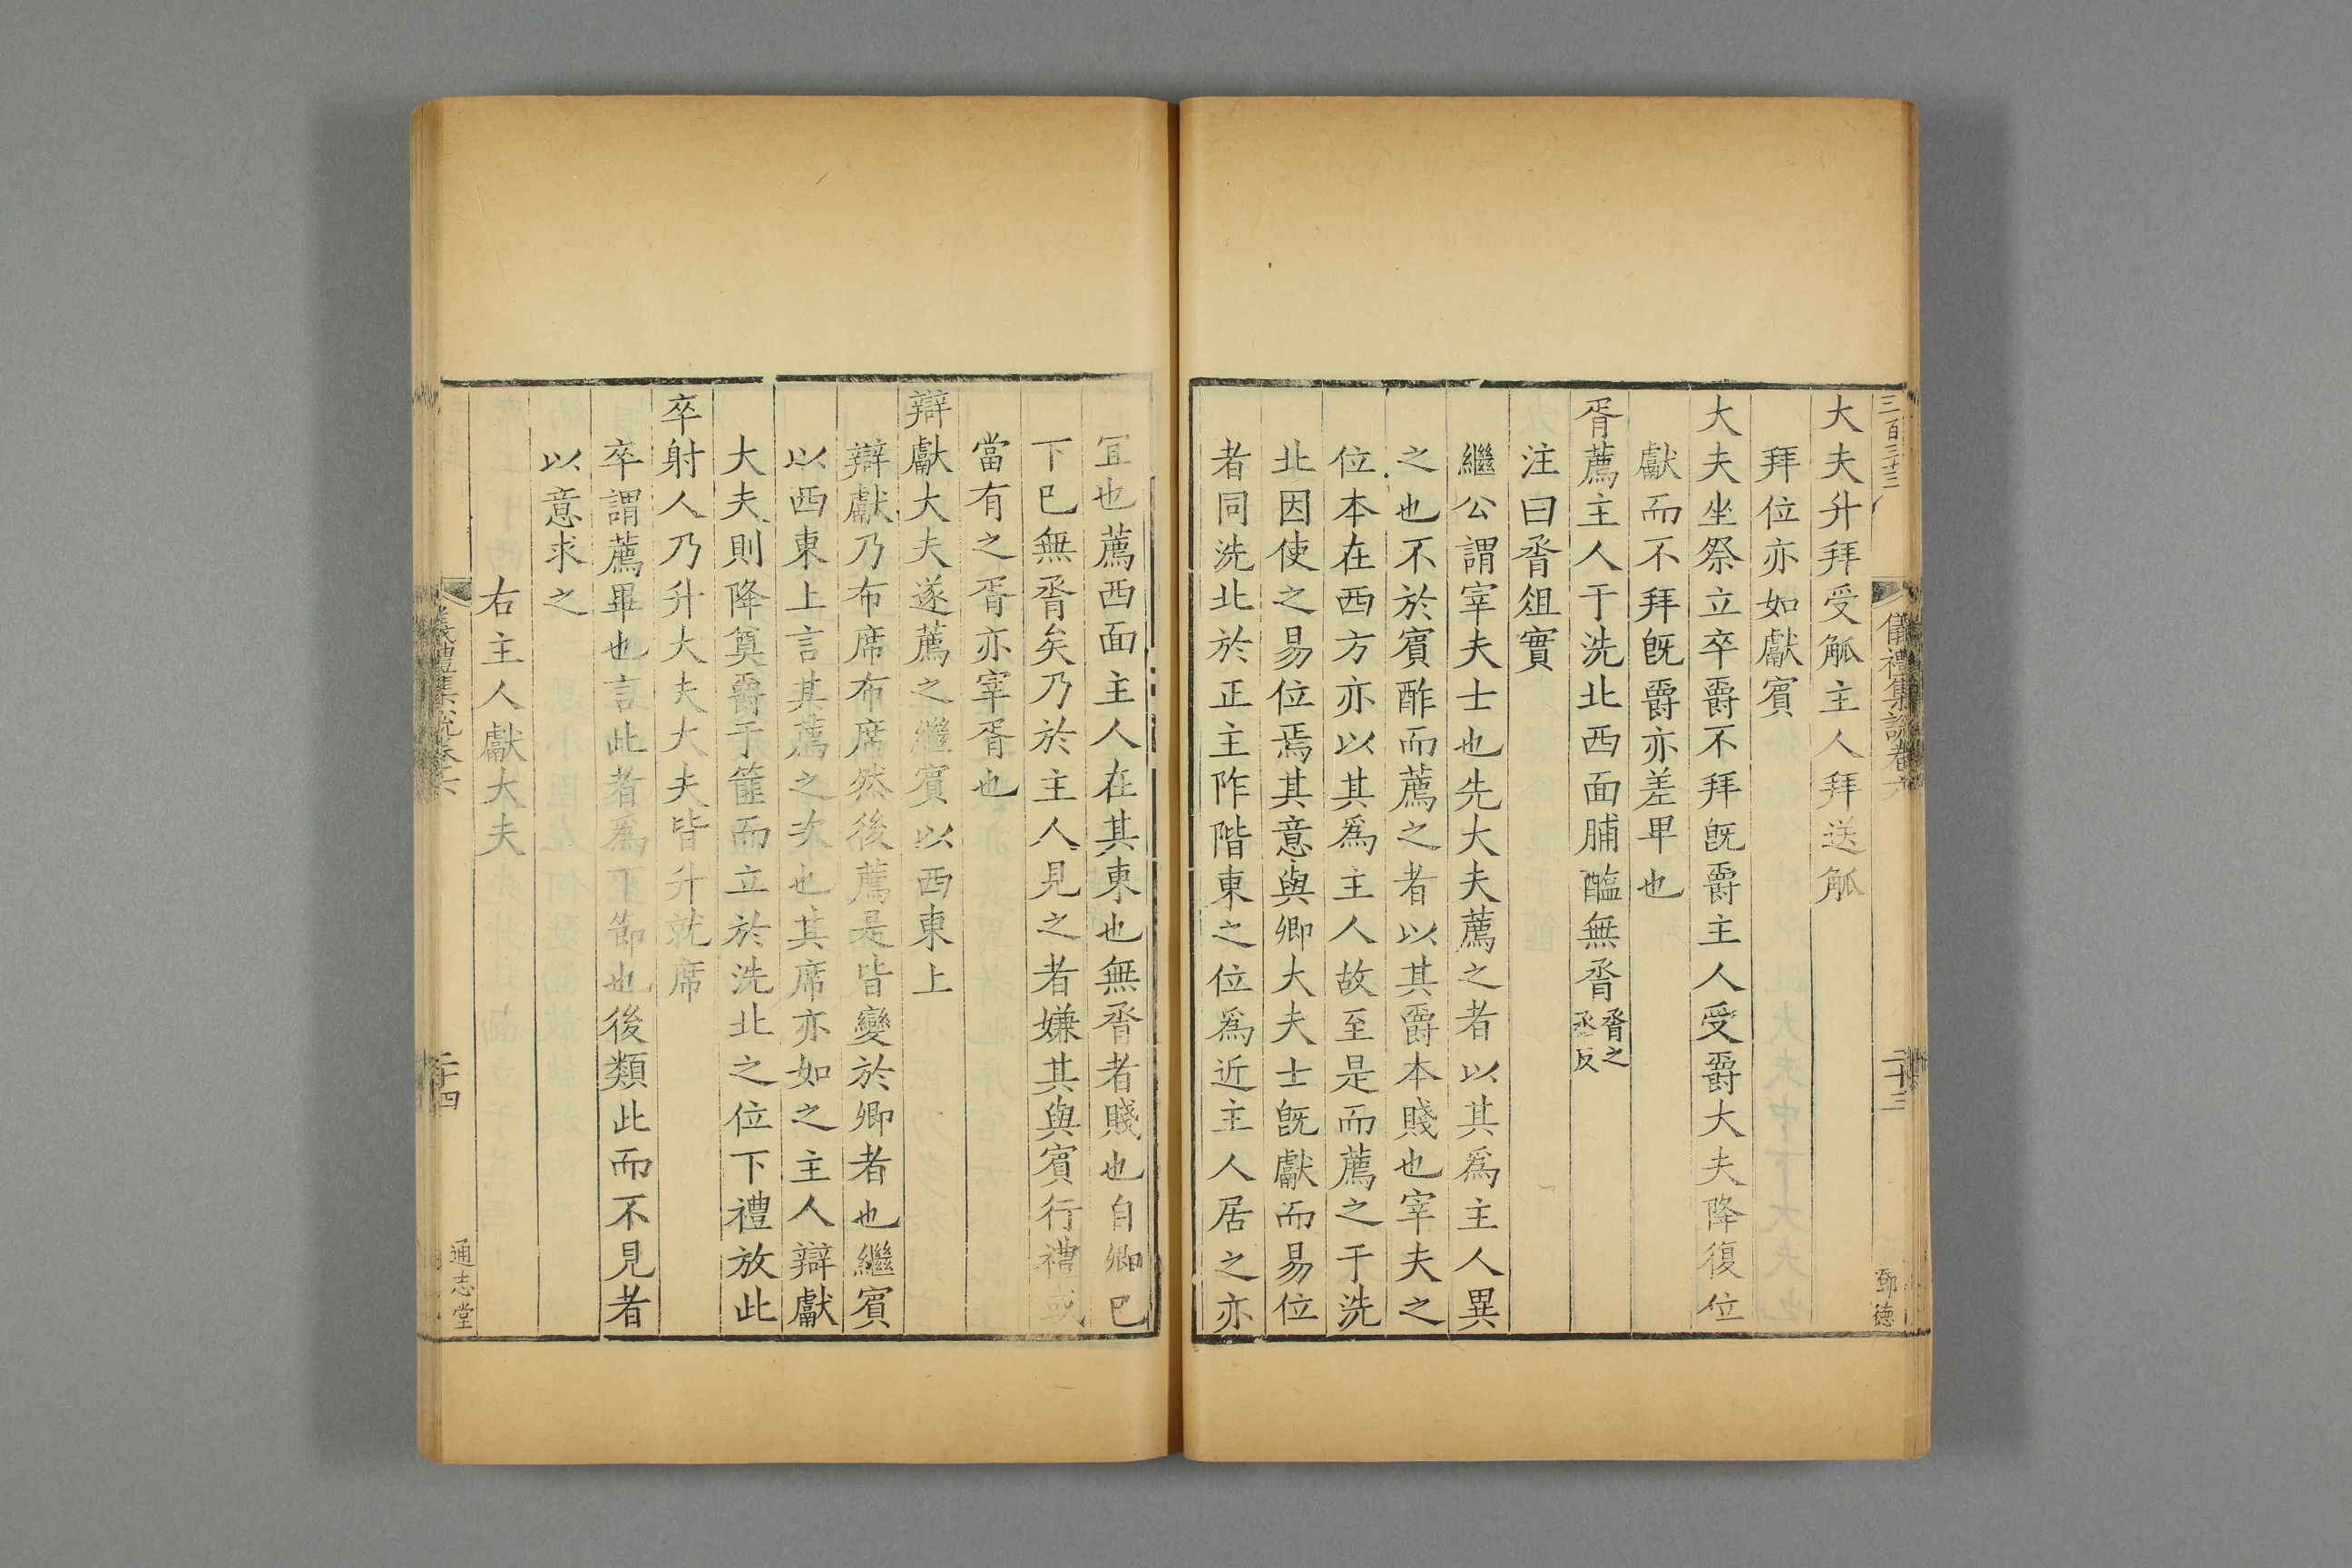 三百三十三
儀禮集說卷六
二十三
鄧德
大夫升拜受觚主人拜送觚
拜位亦如獻賓
大夫坐祭立卒爵不拜旣爵主人受爵大夫降復位
獻而不拜旣爵亦差卑也
胥薦主人于洗北西面脯醢無脀脀之
丞反
注曰脀俎實
繼公謂宰夫士也先大夫薦之者以其爲主人異
之也不於賓酢而薦之者以其爵本賤也宰夫之
位本在西方亦以其爲主人故至是而薦之于洗
北因使之易位焉其意與卿大夫士旣獻而易位
者同洗北於正主阼階東之位爲近主人居之亦
宜也薦西面主人在其東也無脀者賤也自卿已
下已無脀矣乃於主人見之者嫌其與賓行禮或
當有之胥亦宰胥也
辯獻大夫遂薦之繼賓以西東上
辯獻乃布席布席然後薦是皆變於卿者也繼賓
以西東上言其薦之次也其席亦如之主人辯獻
大夫則降奠爵于篚而立於洗北之位下禮放此
卒射人乃升大夫大夫皆升就席
卒謂薦畢也言此者爲下節也後類此而不見者
以意求之
右主人獻大夫
儀禮集說卷六
二十四
通志堂